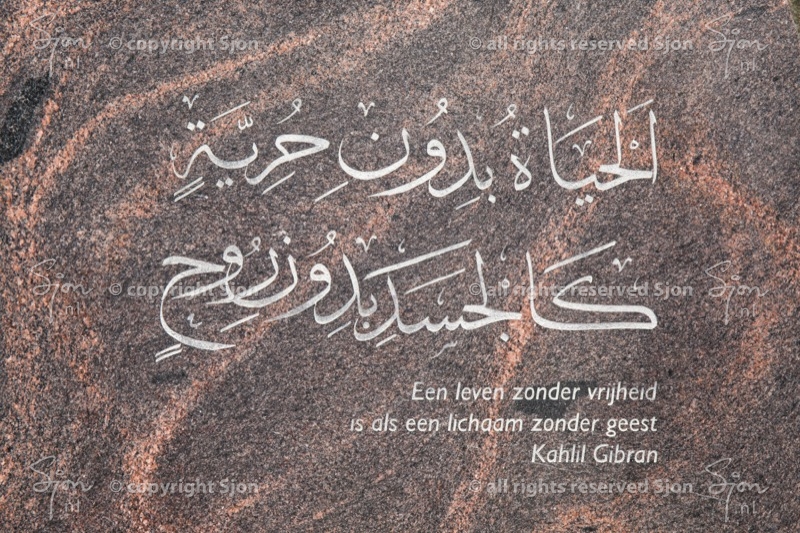 © copyright Sjon © all rights reserved Sjon
Sjon.nl
Sjon.nl
اَلْحَيَاةُ بُدِوُنِ حُرِيَّةٍ
كَالْجَسَدِبَدِوُنِ رُوحٍ
© copyright Sjon © all rights reserved Sjon
Sjon.nl
Sjon.nl
Een leven zonder vrijheid
is als een lichaam zonder geest
Kahlil Gibran
© copyright Sjon © all rights reserved Sjon
Sjon.nl
Sjon.nl